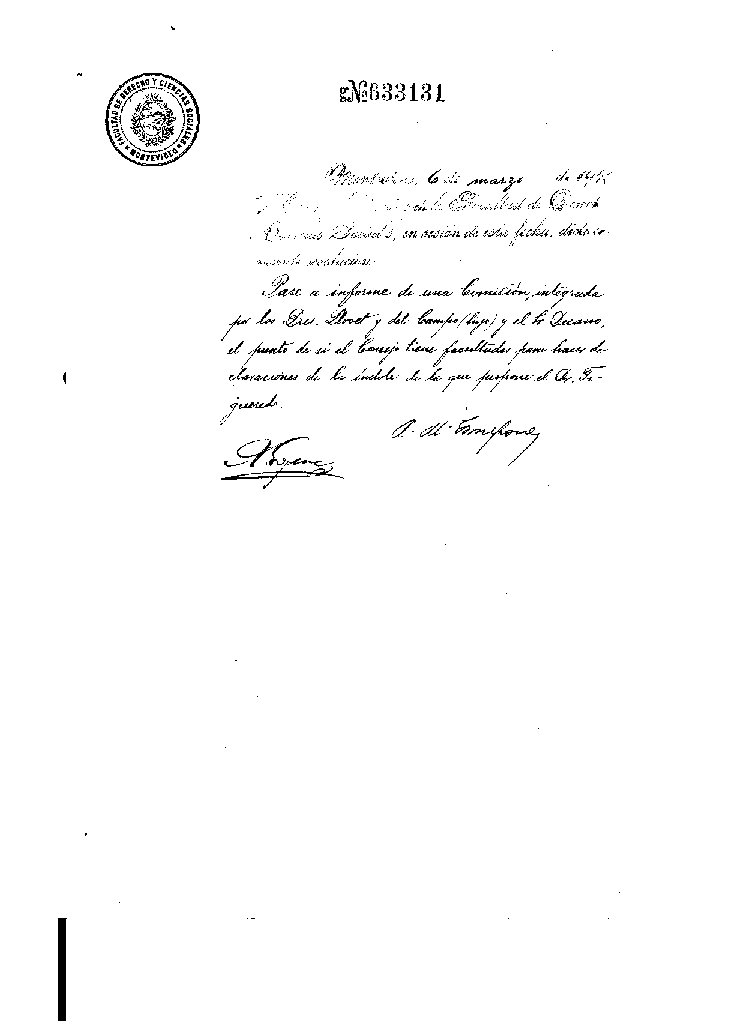 FACULTAD DE DERECHO Y CIENCIAS SOCIALES
MONTEVIDEO
Nº633131
Montevideo, 6 de marzo de
de la Facultad de Derecho
Sociales, en sesión de esta fecha, dictó la
resolución:
Pase a informe de una Comisión, integrada
por los Dres. Llovet y del Campo (hijo) y el Sr Decano,
el punto de si el Consejo tiene facultades para hacer de-
claraciones de la índole de la que propone el Dr. Fi-
gueredo.